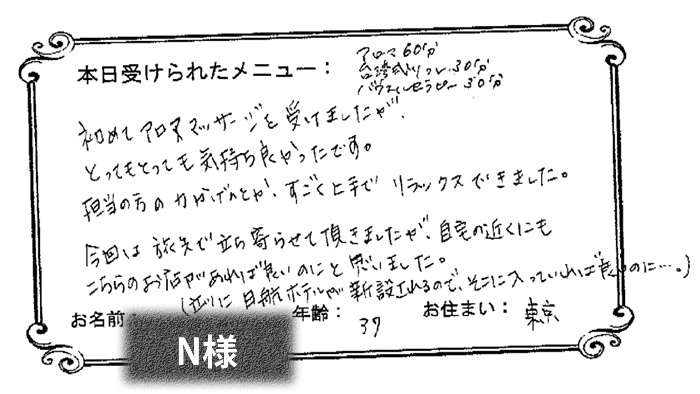 本日受けられたメニュー：
アロマ60分
台湾式リフレ30分
バウエルセラピー30分
初めてアロママッサージを受けましたが、
とってもとっても気持ち良かったです。
担当の方の力かげんとか、すごく上手でリラックスできました。
今回は旅先で立ち寄らせて頂きましたが、自宅の近くにも
こちらのお店があれば良いのにと思いました。
(立川に日航ホテルが新設されるので、そこに入っていれば良いのに…。)
お名前：
N様
年齢：
37
お住まい：
東京